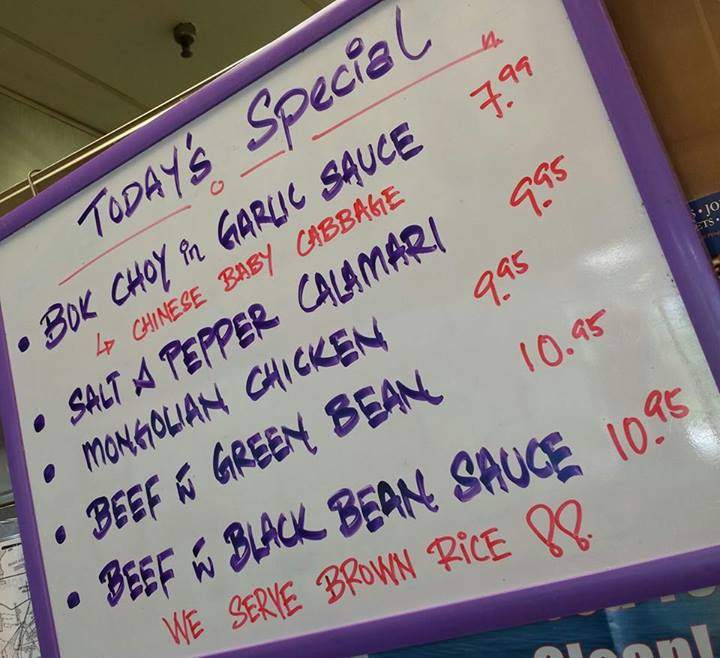 TODAY'S Special
• BOK CHOY in GARLIC SAUCE 7.99
↳ CHINESE BABY CABBAGE
• SALT & PEPPER CALAMARI 9.95
• MONGOLIAN CHICKEN 9.95
• BEEF W GREEN BEAN 10.95
• BEEF W BLACK BEAN SAUCE 10.95
WE SERVE BROWN RICE !!